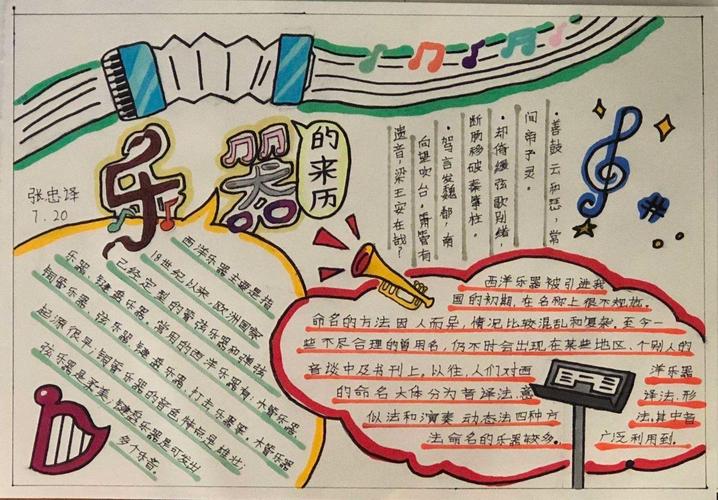 乐器
的来历
张忠译
7.20
·善鼓云和瑟，常
间帝子灵。
·却倚缓弦歌别绪，
断肠移破秦筝柱。
·驾言发魏都，南
向望吹台。箫管有
遗音，梁王安在哉？
西洋乐器主要是指
18世纪以来，欧洲国家
已经定型的管弦乐器和弹拨
乐器、键盘乐器。常用的西洋乐器有：木管乐器、
铜管乐器、弦乐器、键盘乐器、打击乐器等。木管乐器
起源很早；铜管乐器的音色特点是雄壮；
弦乐器是柔美；键盘乐器是可发出
多个乐音。
西洋乐器被引进我
国的初期，在名称上很不规范。
命名的方法因人而异，情况比较混乱和复杂。至今一
些不尽合理的曾用名，仍不时会出现在某些地区、个别人的
言谈中及书刊上。以往，人们对西洋乐器
的命名大体分为音译法、意译法、形
似法和演奏动态法四种方法。其中音
法命名的乐器较多，广泛利用到。